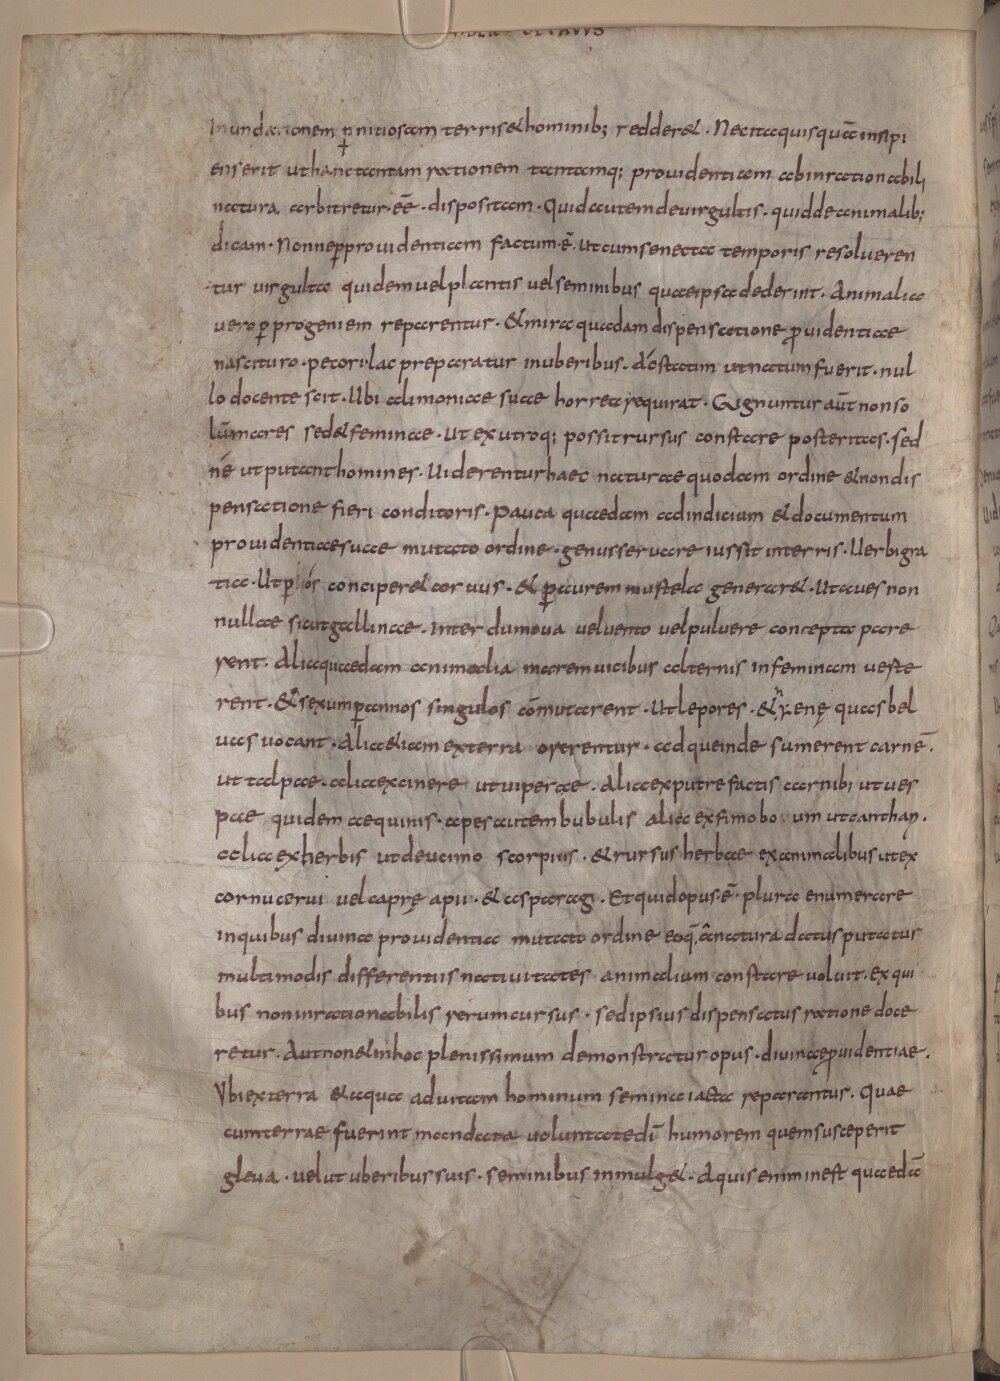 LIBER OCTAVVS
Inundationem p̱nitiosam terris & hominib; redder&. Nec ita quisquā insipi
ens erit ut hanc tantam rationem tantamq; prouidentiam ab inrationabili
natura arbitretur. eē. dispositam. Quid autem de uirgultis. quid de animalib;
dicam. Nonne p̱ prouidentiam factum. ē. ut cum senecta temporis resolueren
tur uirgulta quidem uel plantis uel seminibus quae ipsa dederint. Animalia
uero p̱ progeniem reparentur. & mira quadam dispensatione puidentiae
nascituro. pecori lac preparatur in uberibus. Ac statim ut natum fuerit. nul
lo docente scit. Ubi alimoniae suae horrea requirat. Gignuntur aūt non so
lū mares sed & feminae. ut ex utroq; possit rursus constare posteritas. sed
né ut putant homines. Uiderentur haec naturae quodam ordine & non dis
pensatione fieri conditoris. Pauca quaedam ad indicium & documentum
prouidentiae suae mutato ordine. genus seruare iussit in terris. Uerbi gra
tia. Ut p̱ ós conciper& coruus. & p̱ aurem mustela generar&. Ut aues non
nullae sicut gallinae. interdum oua uel uento uel puluere concepta pare
rent. Alia quaedam animalia marem uicibus alternis in feminam uerte
rent. & sexum p̱ annos singulos cōmutarent. Ut lepores. & hyenę quas bel
uas uocant. Alia etiam ex terra orerentur. adque inde sumerent carnē.
ut talpae. alia ex cinere ut uiperae. Alia ex putrefactis carnib; ut ues
pae quidem aequinis. apes autem bubulis alia ex fimo bouum ut canthari.
alia ex herbis ut de ucimo scorpius. & rursus herbae ex animalibus ut ex
cornu cerui uel caprę apii. & asparagi. Et quid opus. ē. plura enumerare
in quibus diuina prouidentia mutato ordine eoq̄ a natura datus putatur
multimodis differentiis natiuitates animalium constare uoluit. Ex qui
bus non inrationabilis rerum cursus. sed ipsius dispensatus ratione doce
retur. Aut non & in hoc plenissimum demonstratur opus. diuinae puidentiae.
Ubi ex terra & aqua ad uitam hominum semina iacta reparantur. Quae
cum terrae fuerint mandata uoluntate dī humorem quem susceperit
gleua. uelut uberibus suis. seminibus inmulg&. Aquis enim inest quaedā